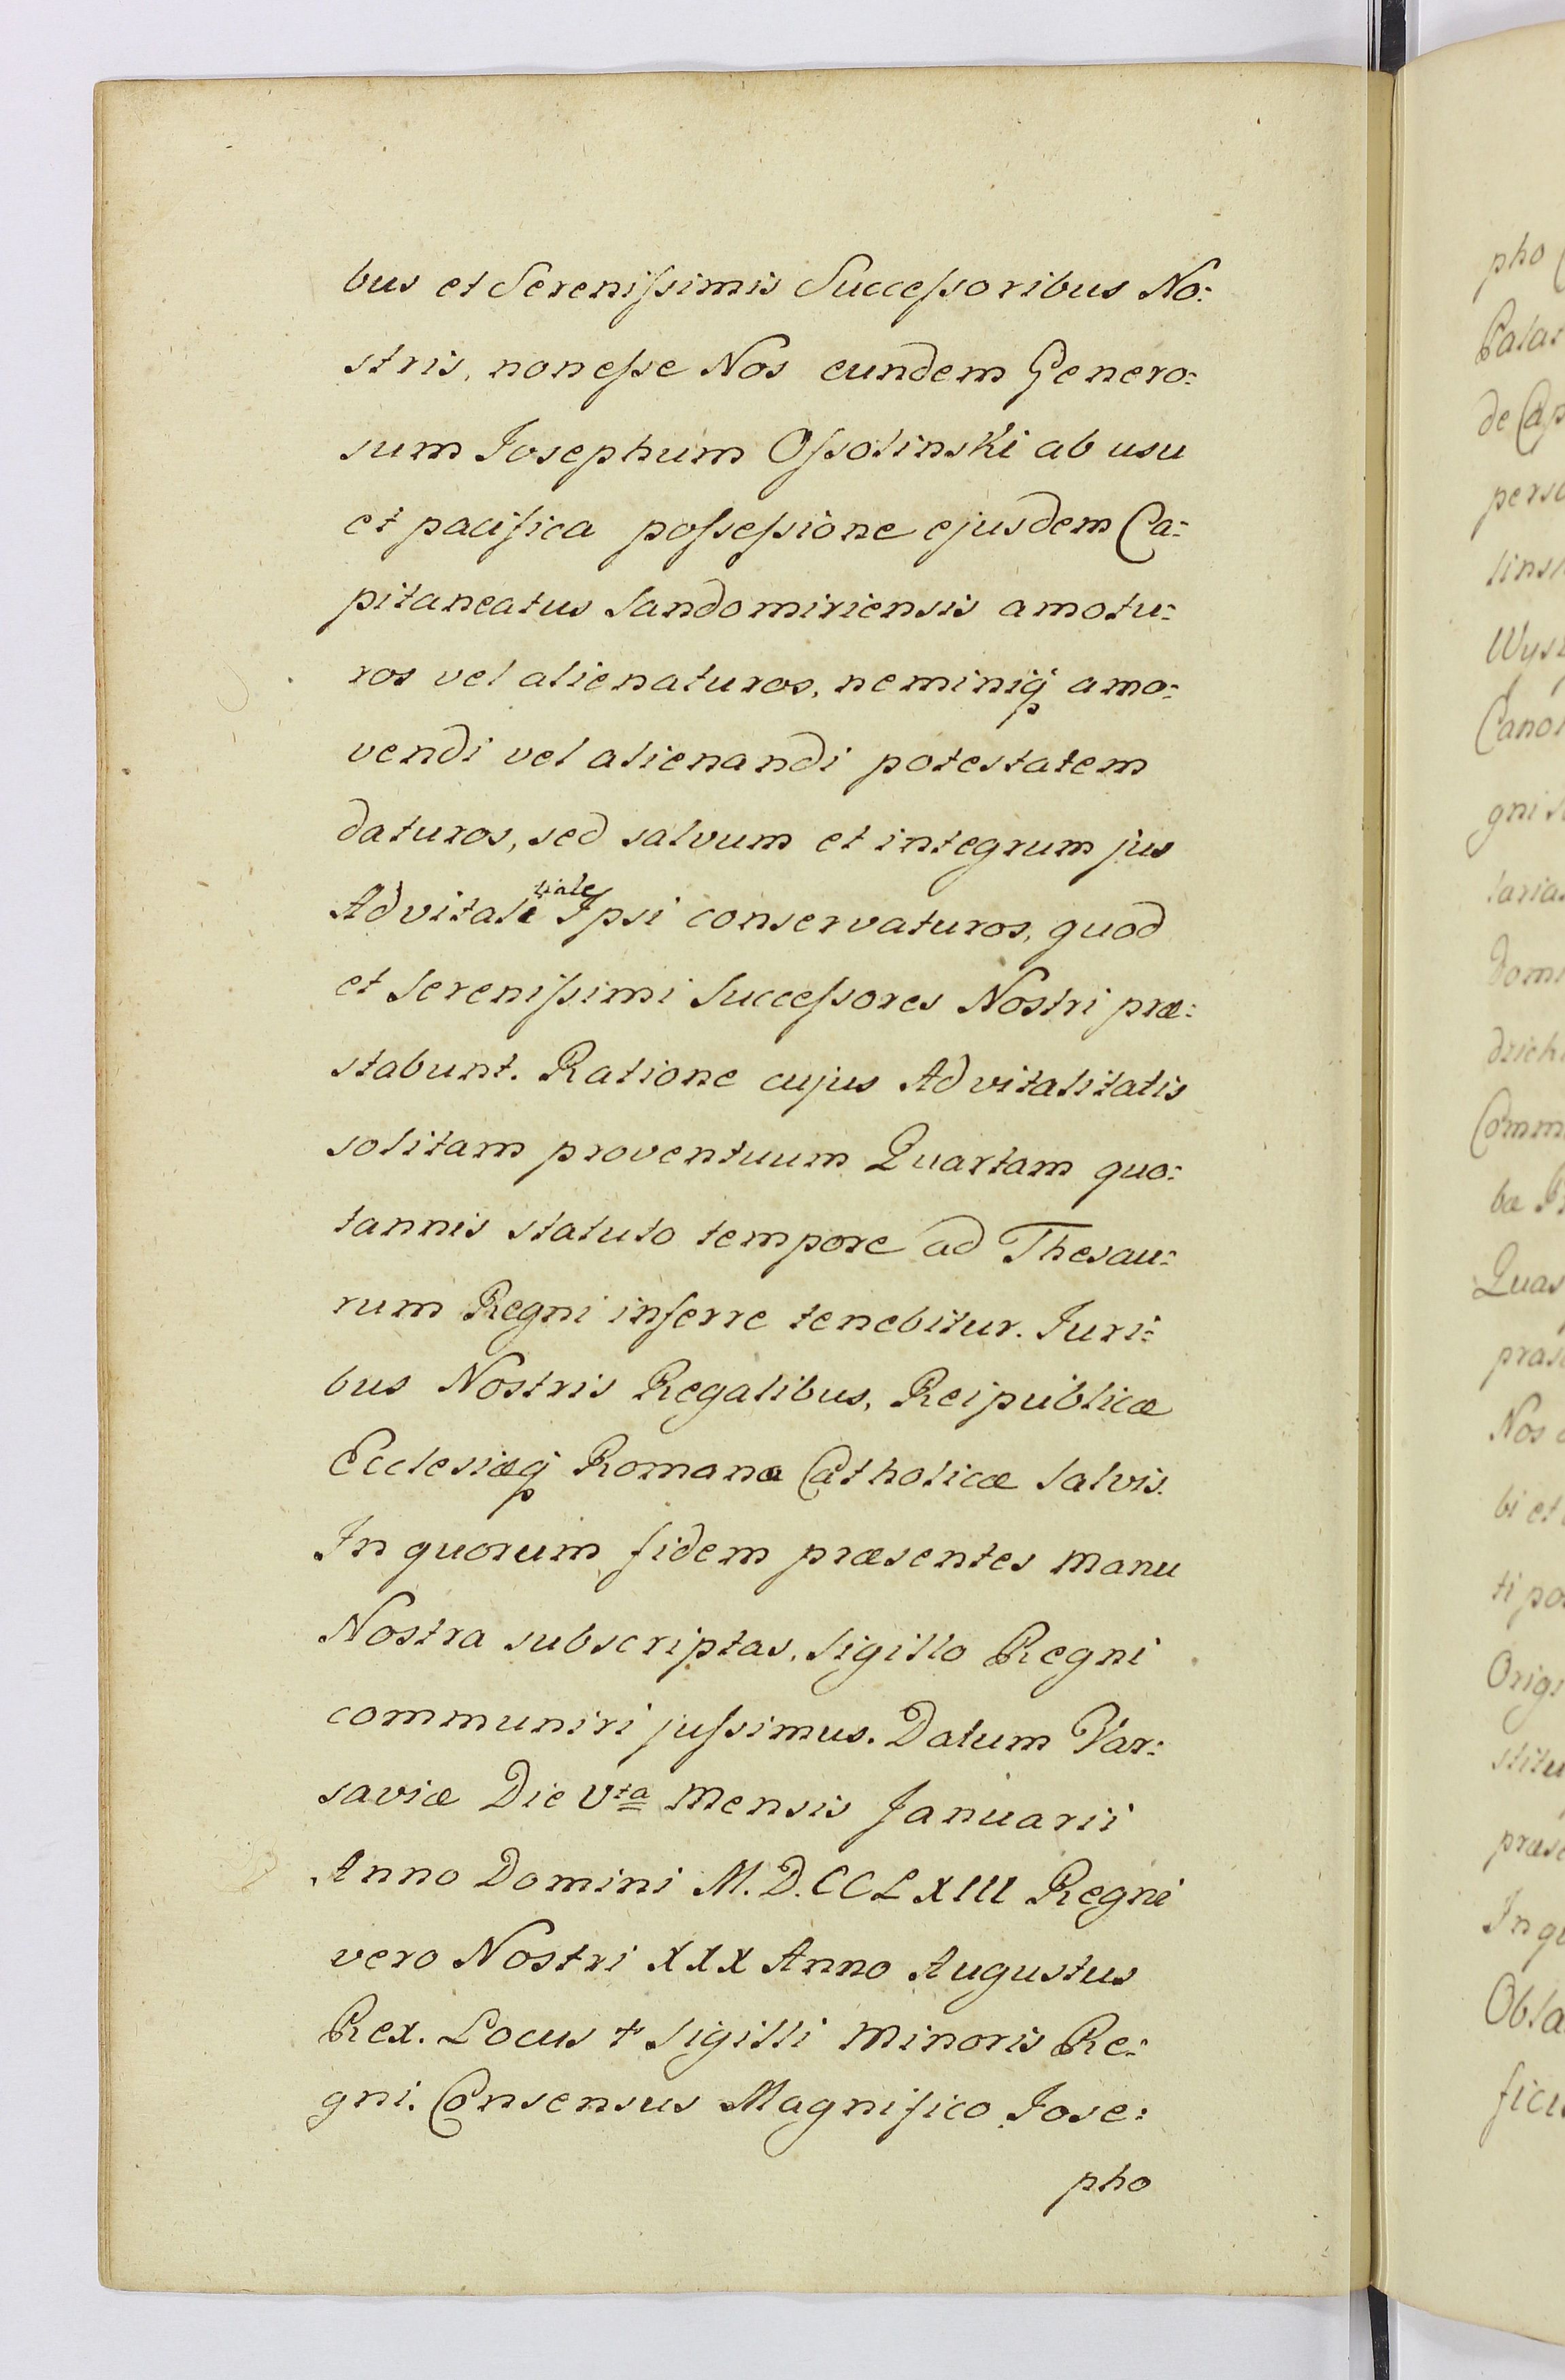 bus et Serenissimis Successoribus No:
stris, non esse Nos eundem Genero:
sum Josephum Ossolinski ab usu
et pacifica possessione ejusdem Ca:
pitaneatus Sandomiriensis amotu:
ros vel alienaturos, neminiq₃ amo:
vendi vel alienandi potestatem
daturos, sed salvum et integrum jus
Advitali tiale Ipsi conservaturos, quod
et Serenissimi Successores Nostri præ:
stabunt. Ratione cujus Advitalitatis
solitam proventuum Quartam quo:
tannis statuto tempore ad Thesau:
rum Regni inferre tenebitur. Juri:
bus Nostris Regalibus, Reipublicæ
Ecclesiæq₃ Romana Catholicæ salvis.
In quorum fidem præsentes manu
Nostra subscriptas, Sigillo Regni
communiri jussimus. Datum Var:
saviæ Die Vta Mensis Januarii
Anno Domini M.D.CCLXIII Regni
vero Nostri XXX Anno Augustus
Rex. Locus + Sigilli Minoris Re:
gni. Consensus Magnifico Jose:
pho
pho
Palat
de Cap
perso
Canon
gni
Comm
Quas
Nos
bi et
ti po
Origi
stitu
In qu
Obla